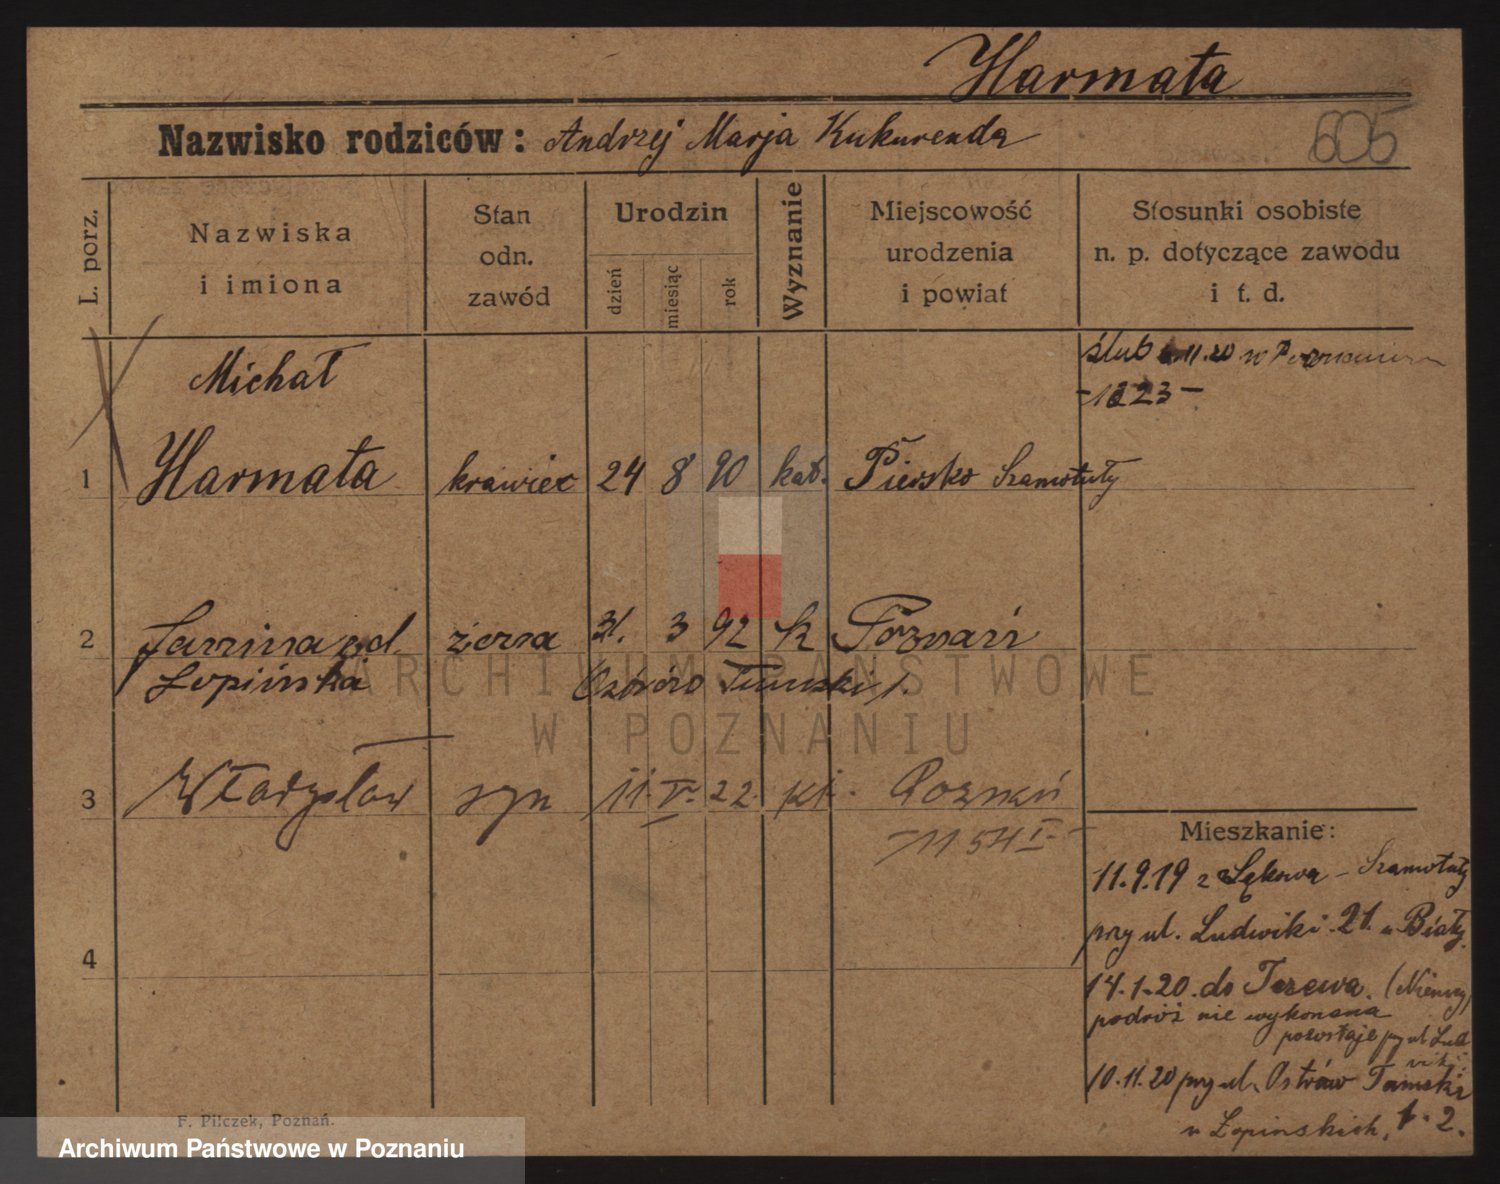 Harmata
Nazwisko rodziców: Andrzej Marja Kukurenda
605
L. porz.
Nazwiska
i imiona
Stan
odn.
zawód
Urodzin
dzień
miesiąc
rok
Wyznanie
Miejscowość
urodzenia
i powiat
Stosunki osobiste
n. p. dotyczące zawodu
i t. d.
ślub 11.20 w Poznaniu
-1623-
Michał
1 Harmata krawiec 24 8 90 kat. Piersko Szamotuły
2 Janina zd. żona 31. 3 92 k Poznań
Łopińska Ostrów Tumski 1.
3 Władysław syn 11. V. 22. kt. Poznań
1154 I
4
Mieszkanie:
11.9.19 z Lękowa - Szamotuły
przy ul. Ludwiki 21 u Biały
14.1.20. do (Niemcy)
podróż nie wykonana
pozostaje przy ul Lud
wiki
10.11.20 przy ul. Ostrów Tumski
u Łopińskich, 1. 2.
F. Pilczek, Poznań.
ARCHIWUM PAŃSTWOWE
W POZNANIU
Archiwum Państwowe w Poznaniu